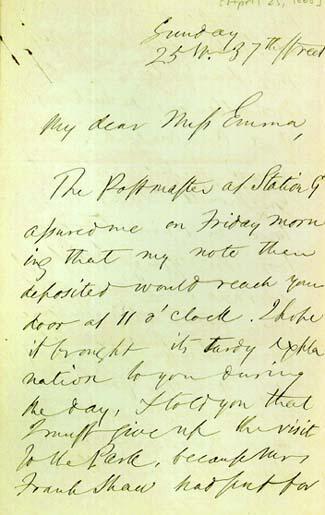 [April 25, 1865]
Sunday
25 W. 37th Street
My dear Miss Emma,
The Postmaster at Station G
assured me on Friday morn
ing that my note then
deposited would reach your
door at 11 o'clock. I hope
it brought its tardy expla
nation to you during
the day, & told you that
I must give up the visit
to the Park, because Mrs
Frank Shaw had sent for